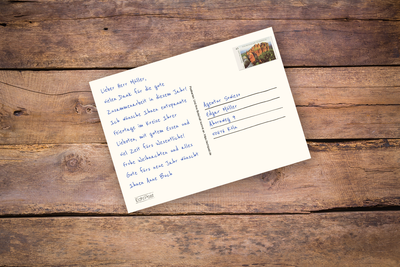 Lieber Herr Möller,
vielen Dank für die gute
Zusammenarbeit in diesem Jahr!
Ich wünsche Ihnen entspannte
Feiertage im Kreise Ihrer
Liebsten, mit gutem Essen und
viel Zeit fürs Wesentliche!
Frohe Weihnachten und alles
Gute fürs neue Jahr wünscht
Ihnen Anne Bach
Edgar Möller
Köln